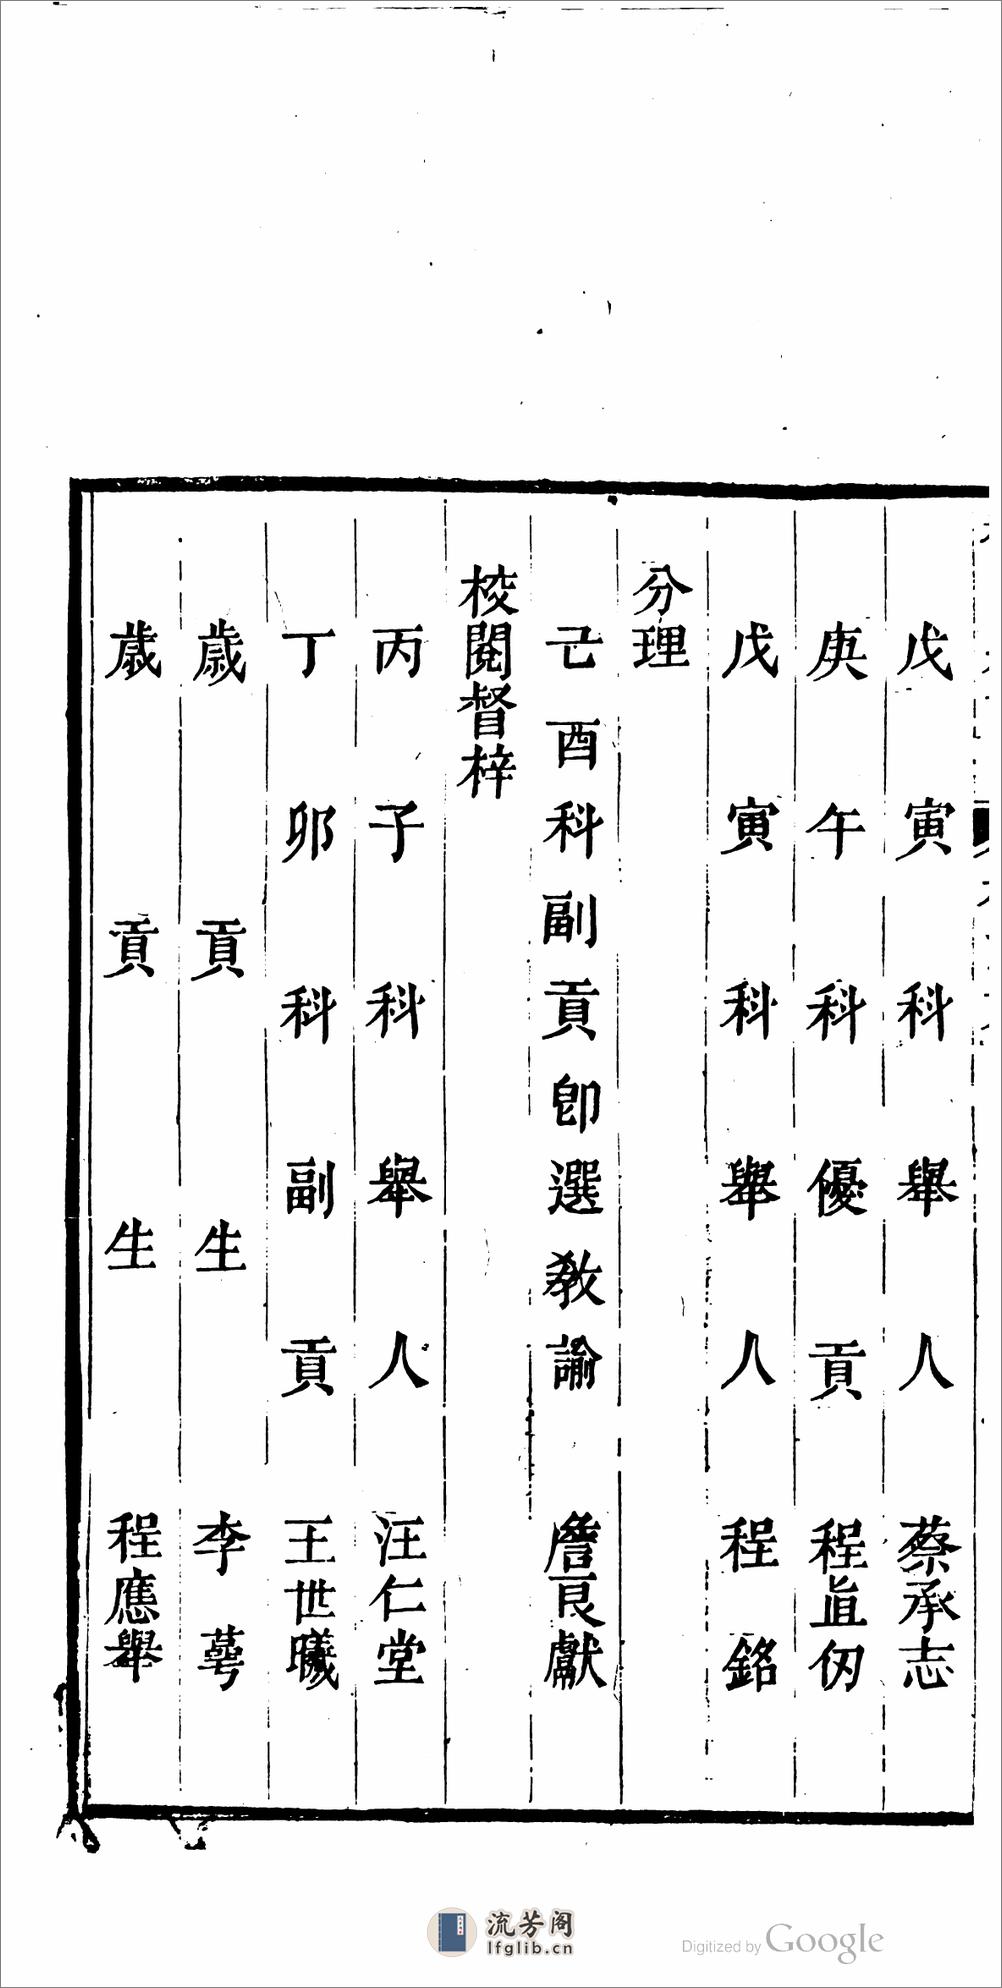 戊寅科舉人 蔡承志
庚午科優貢 程直伆
戊寅科舉人 程銘
分理
己酉科副貢卽選敎諭 詹良獻
校閱督梓
丙子科舉人 汪仁堂
丁卯科副貢 王世曦
歲貢生 李蕚
歲貢生 程應舉
流芳阁
lfglib.cn
Digitized by Google